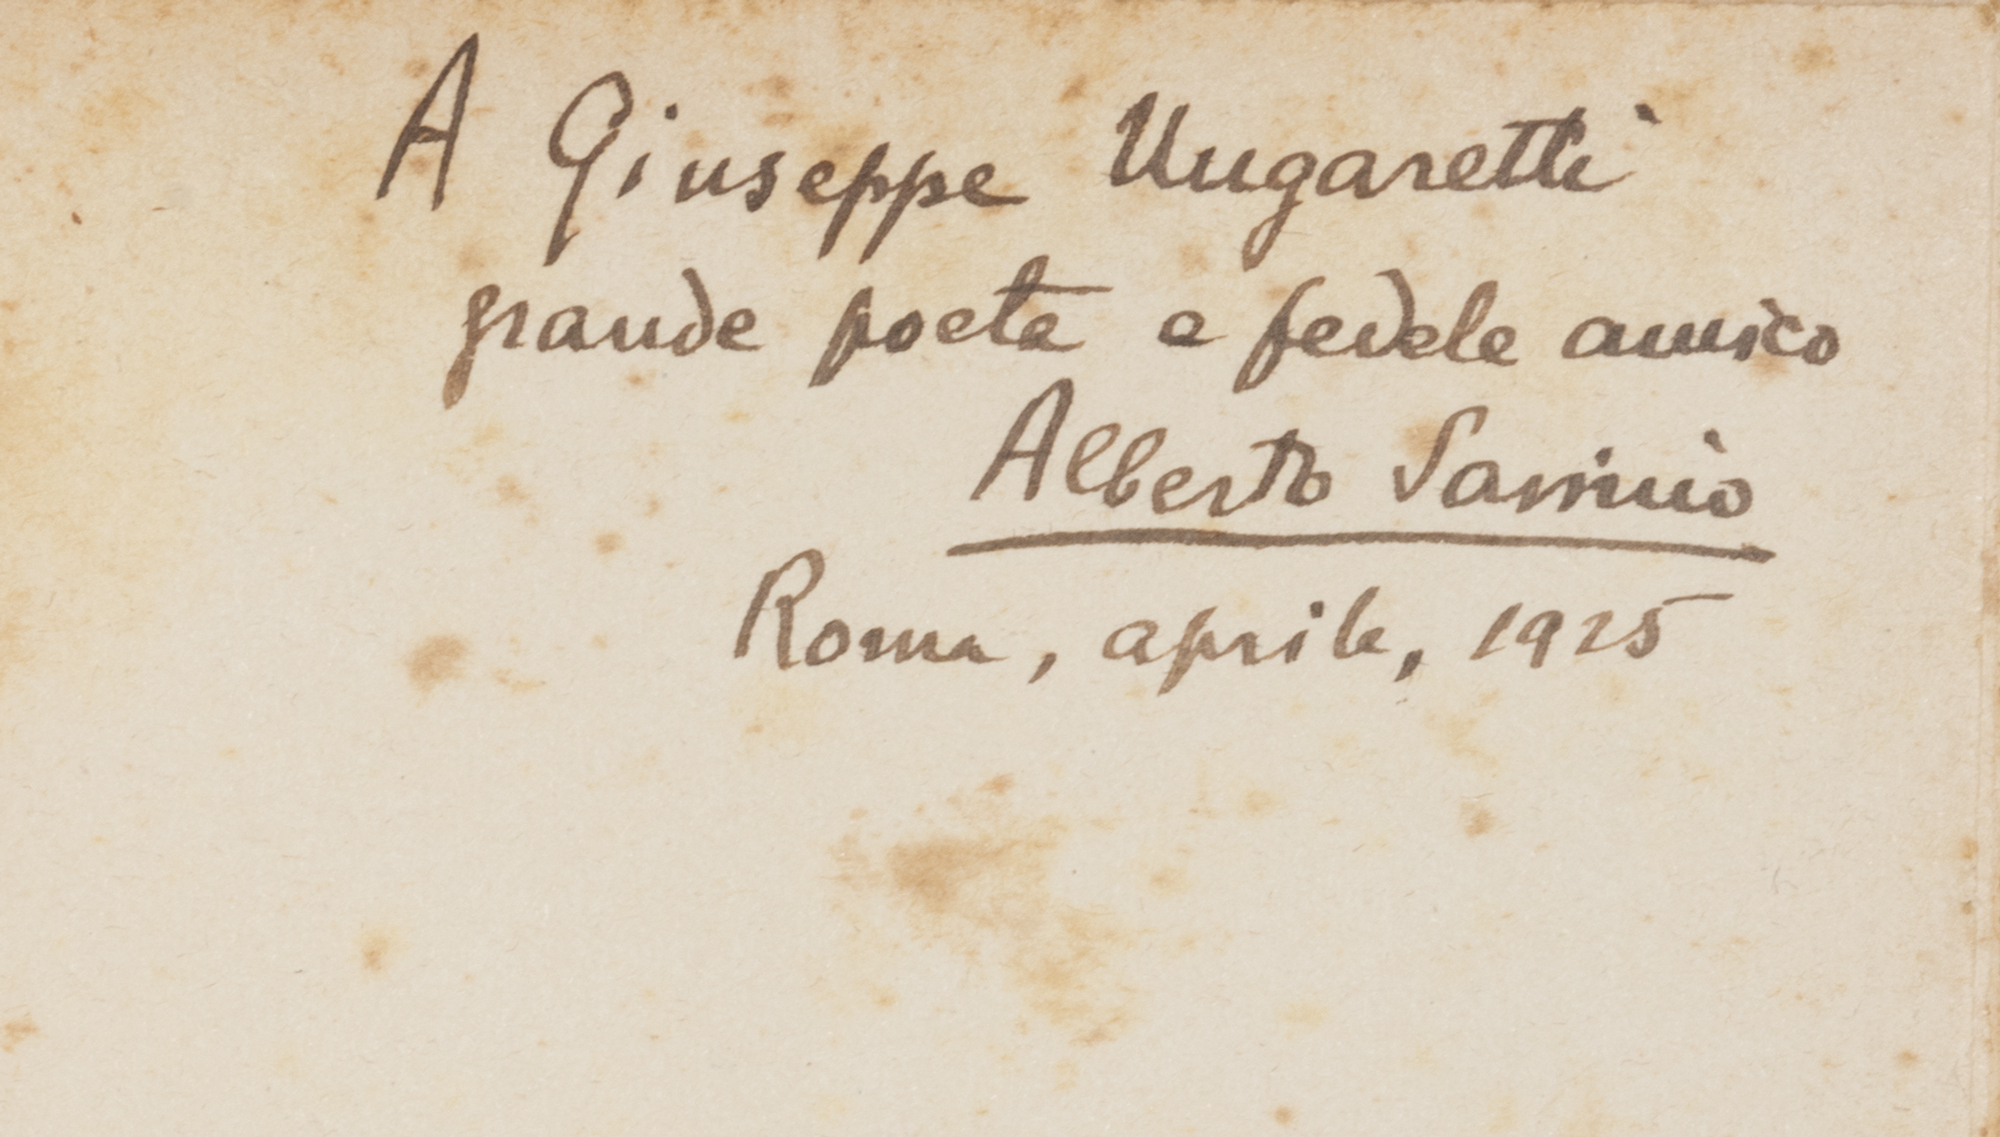 A Giuseppe Ungaretti
grande poeta e fedele amico
Alberto Savinio
Roma, aprile, 1925